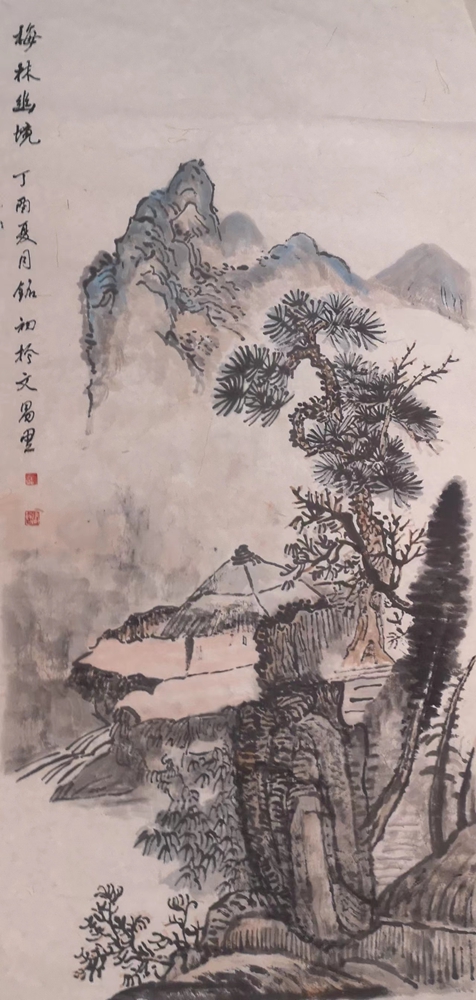 梅林幽境 丁酉夏月铭初於文昌里